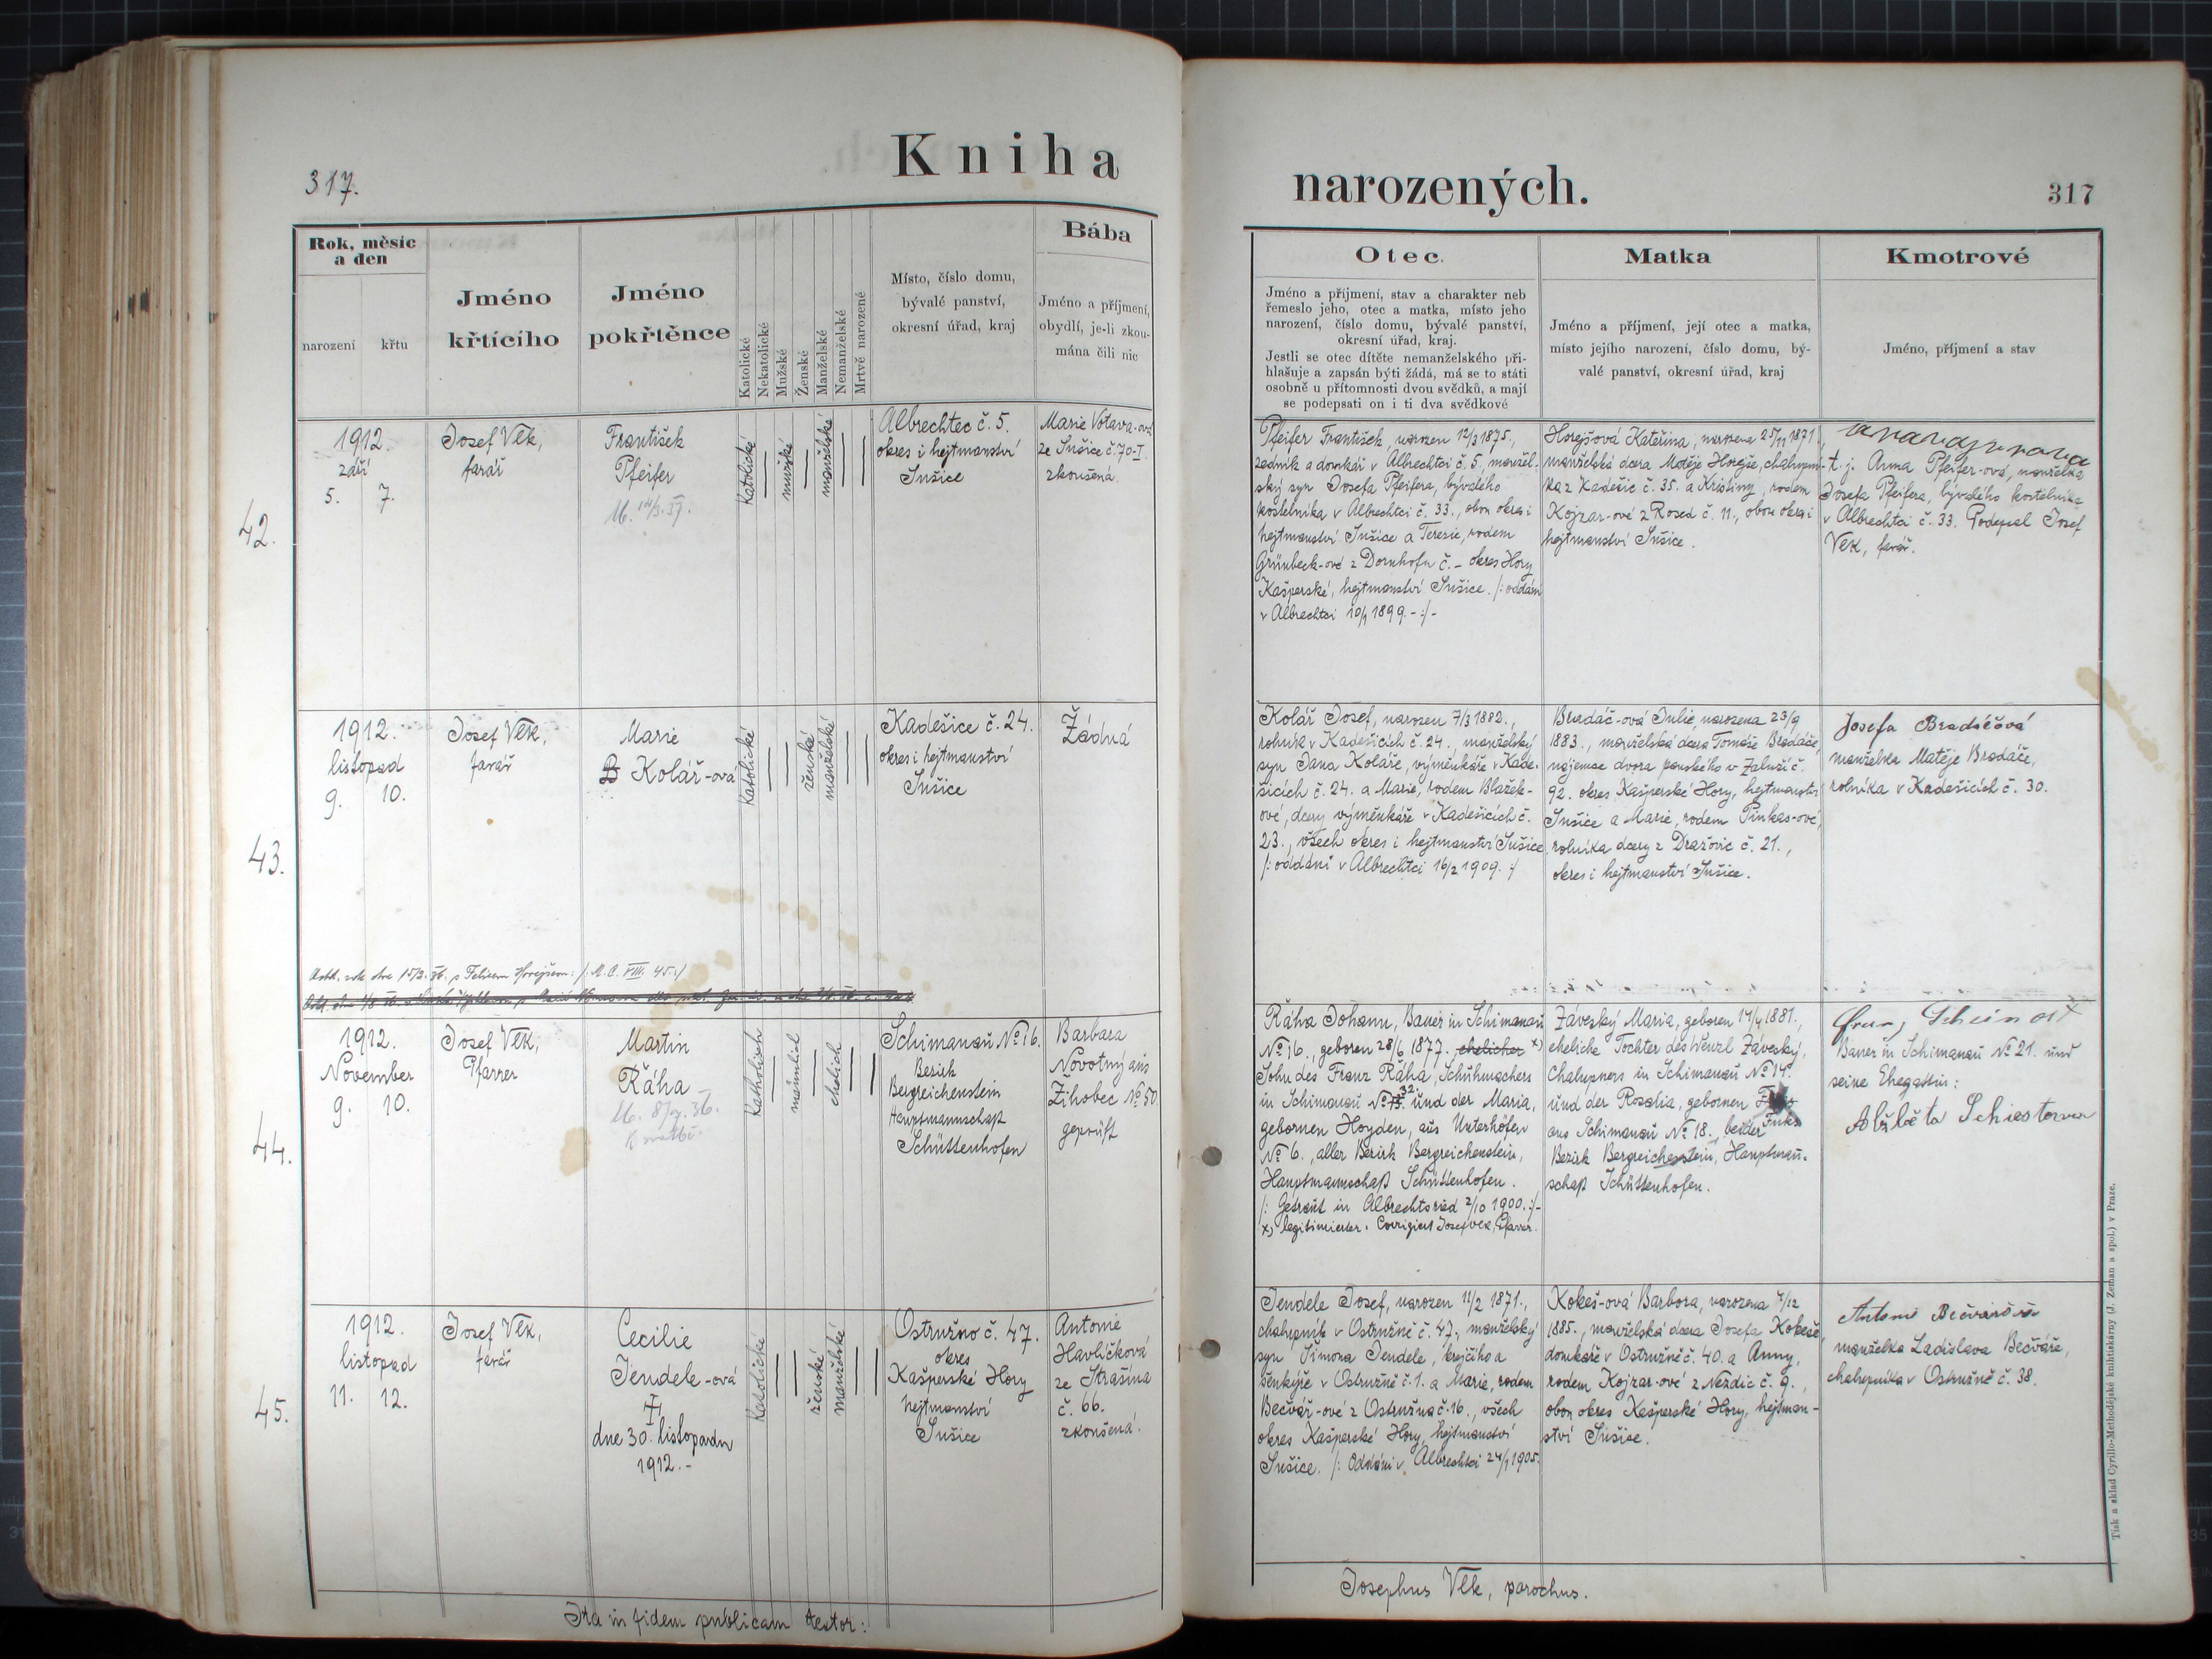 317.
Kniha
Rok, měsíc
a den
narození
křtu
Jméno
křtícího
Jméno
pokřtěnce
Katolické
Nekatolické
Mužské
Ženské
Manželské
Nemanželské
Mrtvě narozené
Místo, číslo domu,
bývalé panství,
okresní úřad, kraj
Bába
Jméno a příjmení,
obydlí, je-li zkou-
mána čili nic
42.
1912.
září
5. 7.
Josef Vlk,
farář
František
Pfeifer
Katolické
mužské
manželské
Albrechtec č. 5.
okres i hejtmanství
Sušice
Marie Votava-ová
ze Sušice č. 70-I.
zkoušená.
43.
1912.
listopad
9. 10.
Josef Vlk,
farář
Marie
Kolář-ová
Katolické
ženské
manželské
Kadešice č. 24.
okres i hejtmanství
Sušice
Žádná
44.
1912.
November
9. 10.
Josef Vlk,
Pfarrer
Martin
Řáha
Katholisch
männlich
ehelich
Schimanau No 16.
Bezirk
Bergreichenstein
Hauptmannschaft
Schüttenhofen
Barbara
Novotný aus
Žihobec No 50
geprüft
45.
1912.
listopad
11. 12.
Josef Vlk,
farář
Cecilie
Jendele-ová
dne 30. listopadu
1912.-
Katolické
ženské
manželské
Ostružno č. 47.
okres
Kašperské Hory
hejtmanství
Sušice
Antonie
Havlíčková
ze Strašína
č. 66.
zkoušená.
Ita in fidem publicam testor:
narozených.
317
Otec.
Jméno a příjmení, stav a charakter neb
řemeslo jeho, otec a matka, místo jeho
narození, číslo domu, bývalé panství,
okresní úřad, kraj.
Jestli se otec dítěte nemanželského při-
hlašuje a zapsán býti žádá, má se to státi
osobně u přítomnosti dvou svědků, a mají
se podepsati on i ti dva svědkové
Matka
Jméno a příjmení, její otec a matka,
místo jejího narození, číslo domu, bý-
valé panství, okresní úřad, kraj
Kmotrové
Jméno, příjmení a stav
Pfeifer František, narozen 12/3 1875.,
zedník a domkář v Albrechtci č. 5, manžel-
ský syn Josefa Pfeifera, bývalého
kostelníka v Albrechtci č. 33., obou okres i
hejtmanství Sušice a Terezie, rodem
Grünbeck-ové z Dornhofu č. - okres Hory
Kašperské, hejtmanství Sušice. /: oddáni
v Albrechtci 10/1 1899.- :/-
Horejšová Kateřina, narozena 25/11 1871.,
manželská dcera Matěje Horejše, chalupní-
ka z Kadešic č. 35. a Kristiny, rodem
Kojzar-ové z Rosed č. 11., obou okres i
hejtmanství Sušice.
t. j. Anna Pfeifer-ová, manželka
Josefa Pfeifera, bývalého kostelníka
v Albrechtci č. 33. Podepsal Josef
Vlk, farář.
Kolář Josef, narozen 7/3 1882.,
rolník v Kadešicích č. 24., manželský
syn Jana Koláře, výměnkáře v Kade-
šicích č. 24. a Marie, rodem Blažek-
ové, dcery výměnkáře v Kadešicích č.
23., všech okres i hejtmanství Sušice
/: oddáni v Albrechtci 16/2 1909. :/
Bradáč-ová Julie narozena 23/9
1883., manželská dcera Tomáše Bradáče,
nájemce dvora panského v Zaluží č.
92. okres Kašperské Hory, hejtmanství
Sušice a Marie, rodem Pinkas-ové,
rolníka dcery z Dražovic č. 21.,
okres i hejtmanství Sušice.
Josefa Bradáčová
manželka Matěje Bradáče,
rolníka v Kadešicích č. 30.
Řáha Johann, Bauer in Schimanau
No 16., geboren 28/6 1877. ehelicher x)
Sohn des Franz Řáha, Schuhmachers
in Schimanau No 32. und der Maria,
gebornen Hoyden, aus Unterhöfen
No 6., aller Bezirk Bergreichenstein,
Hauptmannschaft Schüttenhofen.
/: Getraut in Albrechtsried 2/10 1900. :/-
x) legitimierter. Corrigiert Josef Vlk, Pfarrer.
Záveský Maria, geboren 14/4 1881.,
eheliche Tochter des Wenzl Záveský,
Chalupners in Schimanau No 14.
und der Rosalia, gebornen
Fuks
aus Schimanau No 18., beider
Bezirk Bergreichenstein, Hauptmann-
schaft Schüttenhofen.
Bauer in Schimanau No 21. und
seine Ehegattin:
Jendele Josef, narozen 11/2 1871.,
chalupník v Ostružně č. 47., manželský
syn Šimona Jendele, krejčího a
šenkýře v Ostružně č. 1. a Marie, rodem
Bečvář-ové z Ostružna č. 16., všech
okres Kašperské Hory, hejtmanství
Sušice. /: Oddáni v Albrechtci 24/1 1905.
Kokeš-ová Barbora, narozena 4/12
1885., manželská dcera Josefa Kokeše,
domkáře v Ostružně č. 40. a Anny,
rodem Kojzar-ové z Nezdic č. 9.,
obou okres Kašperské Hory, hejtman-
ství Sušice.
Antonie Bečvářová
manželka Ladislava Bečváře,
chalupníka v Ostružně č. 38.
Josephus Vlk, parochus.
Tisk a sklad Cyrillo-Methodějské knihtiskárny (J. Zeman a spol.) v Praze.